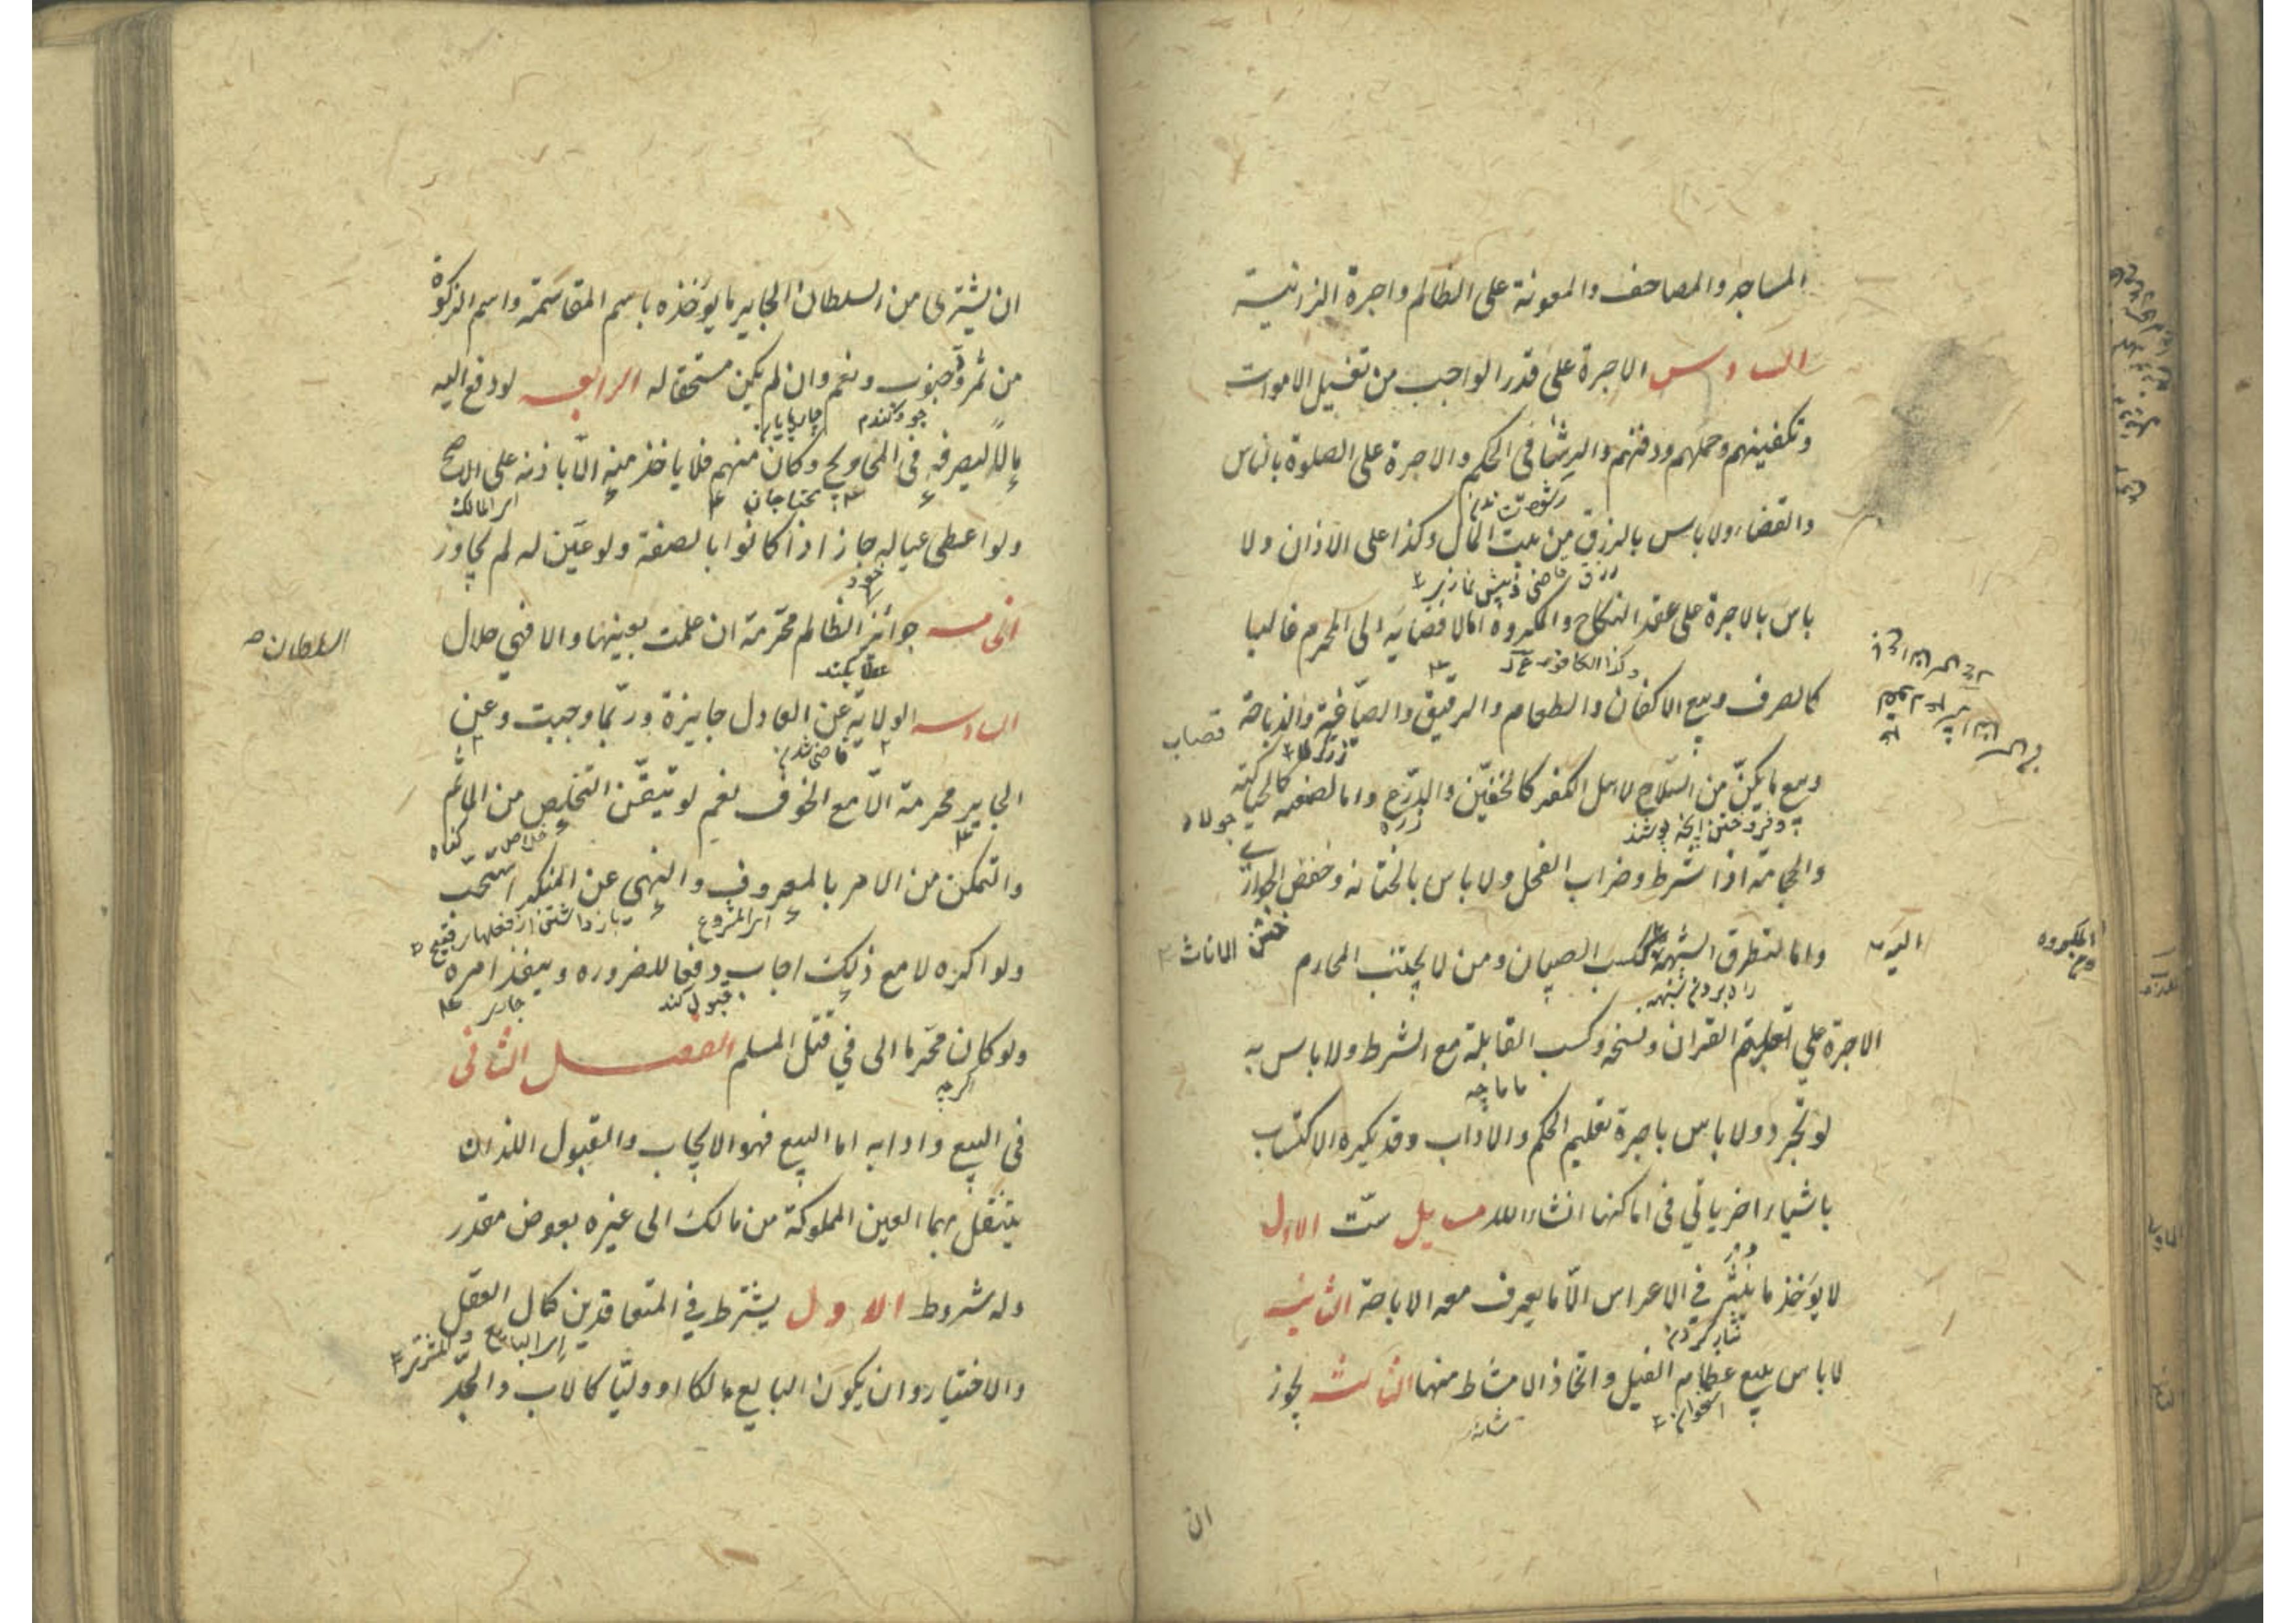 المساجد والمصاحف والمعونة على الظالم واجرة الزانية
السادس الاجرة على قدر الواجب من تغسيل الاموات
وتكفينهم وحملهم ودفنهم والرشا فى الحكم والاجرة على الصلوة بالناس
رشوت
والقضاء ولا باس بالرزق من بيت المال وكذا على الاذان ولا
رزق قاضى و پيش نماز
باس بالاجرة على عقد النكاح والمكروه اما لافضائه الى المحرم غالبا
وكذا الكافور
كالصرف وبيع الاكفان والطعام والرقيق والصياغة والذباحة
قصاب
زرگر
وبيع ما يكنّ من السلاح لاهل الكفر كالخفين والدرع واما لضعته كالحياكة
جولاه
زره
والحجامة اذا شرط وضراب الفحل ولا باس بالختانة وخفض الجوارى
ختنه الاناث
واما لتطرق الشبهة ككسب الصبيان ومن لا يجتنب المحارم
راه بردن شبهه
اليه
المكروه
الاجرة على تعليم القران ونسخه وكسب القابلة مع الشرط ولا باس به
ماماچه
لو تجرد ولا باس باجرة تعليم الحكم والاداب وقد يكره الاكتساب
باشياء اخر ياتي فى اماكنها انشاء الله مسايل ست الاول
لا يؤخذ ما ينثر في الاعراس الّا ما يعرف معه الاباحة الثانية
نثار كردن
لا باس ببيع عظام الفيل واتخاذ الامشاط منها الثالثة يجوز
استخوان
شانه
ان
ان يشترى من السلطان الجاير ما يؤخذه باسم المقاسمة واسم الزكوة
من ثمرة وحبوب ونعم وان لم يكن مستحقا له الرابعة لو دفع اليه
جو و گندم
چارپايان
مالًا ليصرفه في المحاويج وكان منهم فلا ياخذ منه الّا باذنه على الاصح
محتاجان
اى المالك
ولو اعطى عياله جاز اذا كانوا بالصفة ولو عيّن له لم يجاوز
خود
الخامسة جوائز الظالم محرّمة ان علمت بعينها والا فهي حلال
السلطان
عطا كند
السادسة الولاية عن العادل جايزة وربّما وجبت وعن
قاضى شدن
الجاير محرمة الّا مع الخوف نعم لو تيقّن التخليص من الماثم
خلاص
گناه
والتمكن من الامر بالمعروف والنهى عن المنكر استحبّ
اى المشروع
باز داشتن از فعلهاى قبيح
ولو اكره لا مع ذلك اجاب دفعا للضروره وينفذ امره
قبول كند
جارى
ولو كان محرّما الى في قتل المسلم الفصل الثانى
گرچه
فى البيع وادابه اما البيع فهو الايجاب والقبول اللذان
ينتقل بهما العين المملوكة من مالك الى غيره بعوض مقدر
وله شروط الاول يشترط في المتعاقدين كمال العقل
اى البايع والمشترى
والاختيار وان يكون البايع مالكا او وليّا كالاب والجدّ